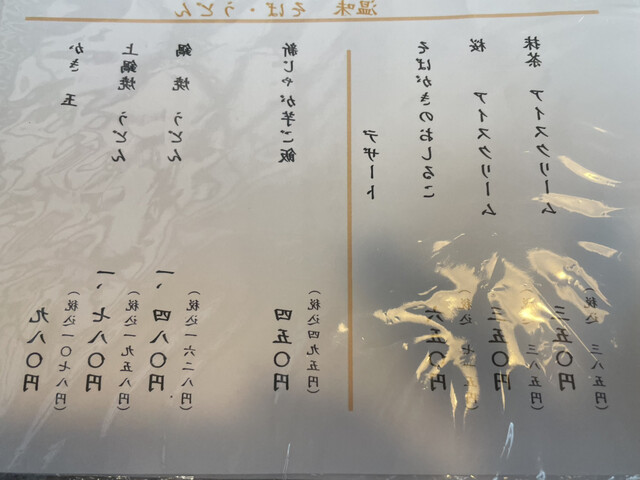 温味 そば・うどん
かき玉 九八〇円
(税込一〇七八円)
上鍋焼 うどん 一、七八〇円
(税込一九五八円)
鍋焼 うどん 一、四八〇円
(税込一六二八円)
新じゃが芋ご飯 四五〇円
(税込四九五円)
デザート
そばがきのおしるこ 六五〇円
(税込 七
桜 アイスクリーム 三五〇円
三八五円)
抹茶 アイスクリーム 三五〇円
(税込 三八五円)